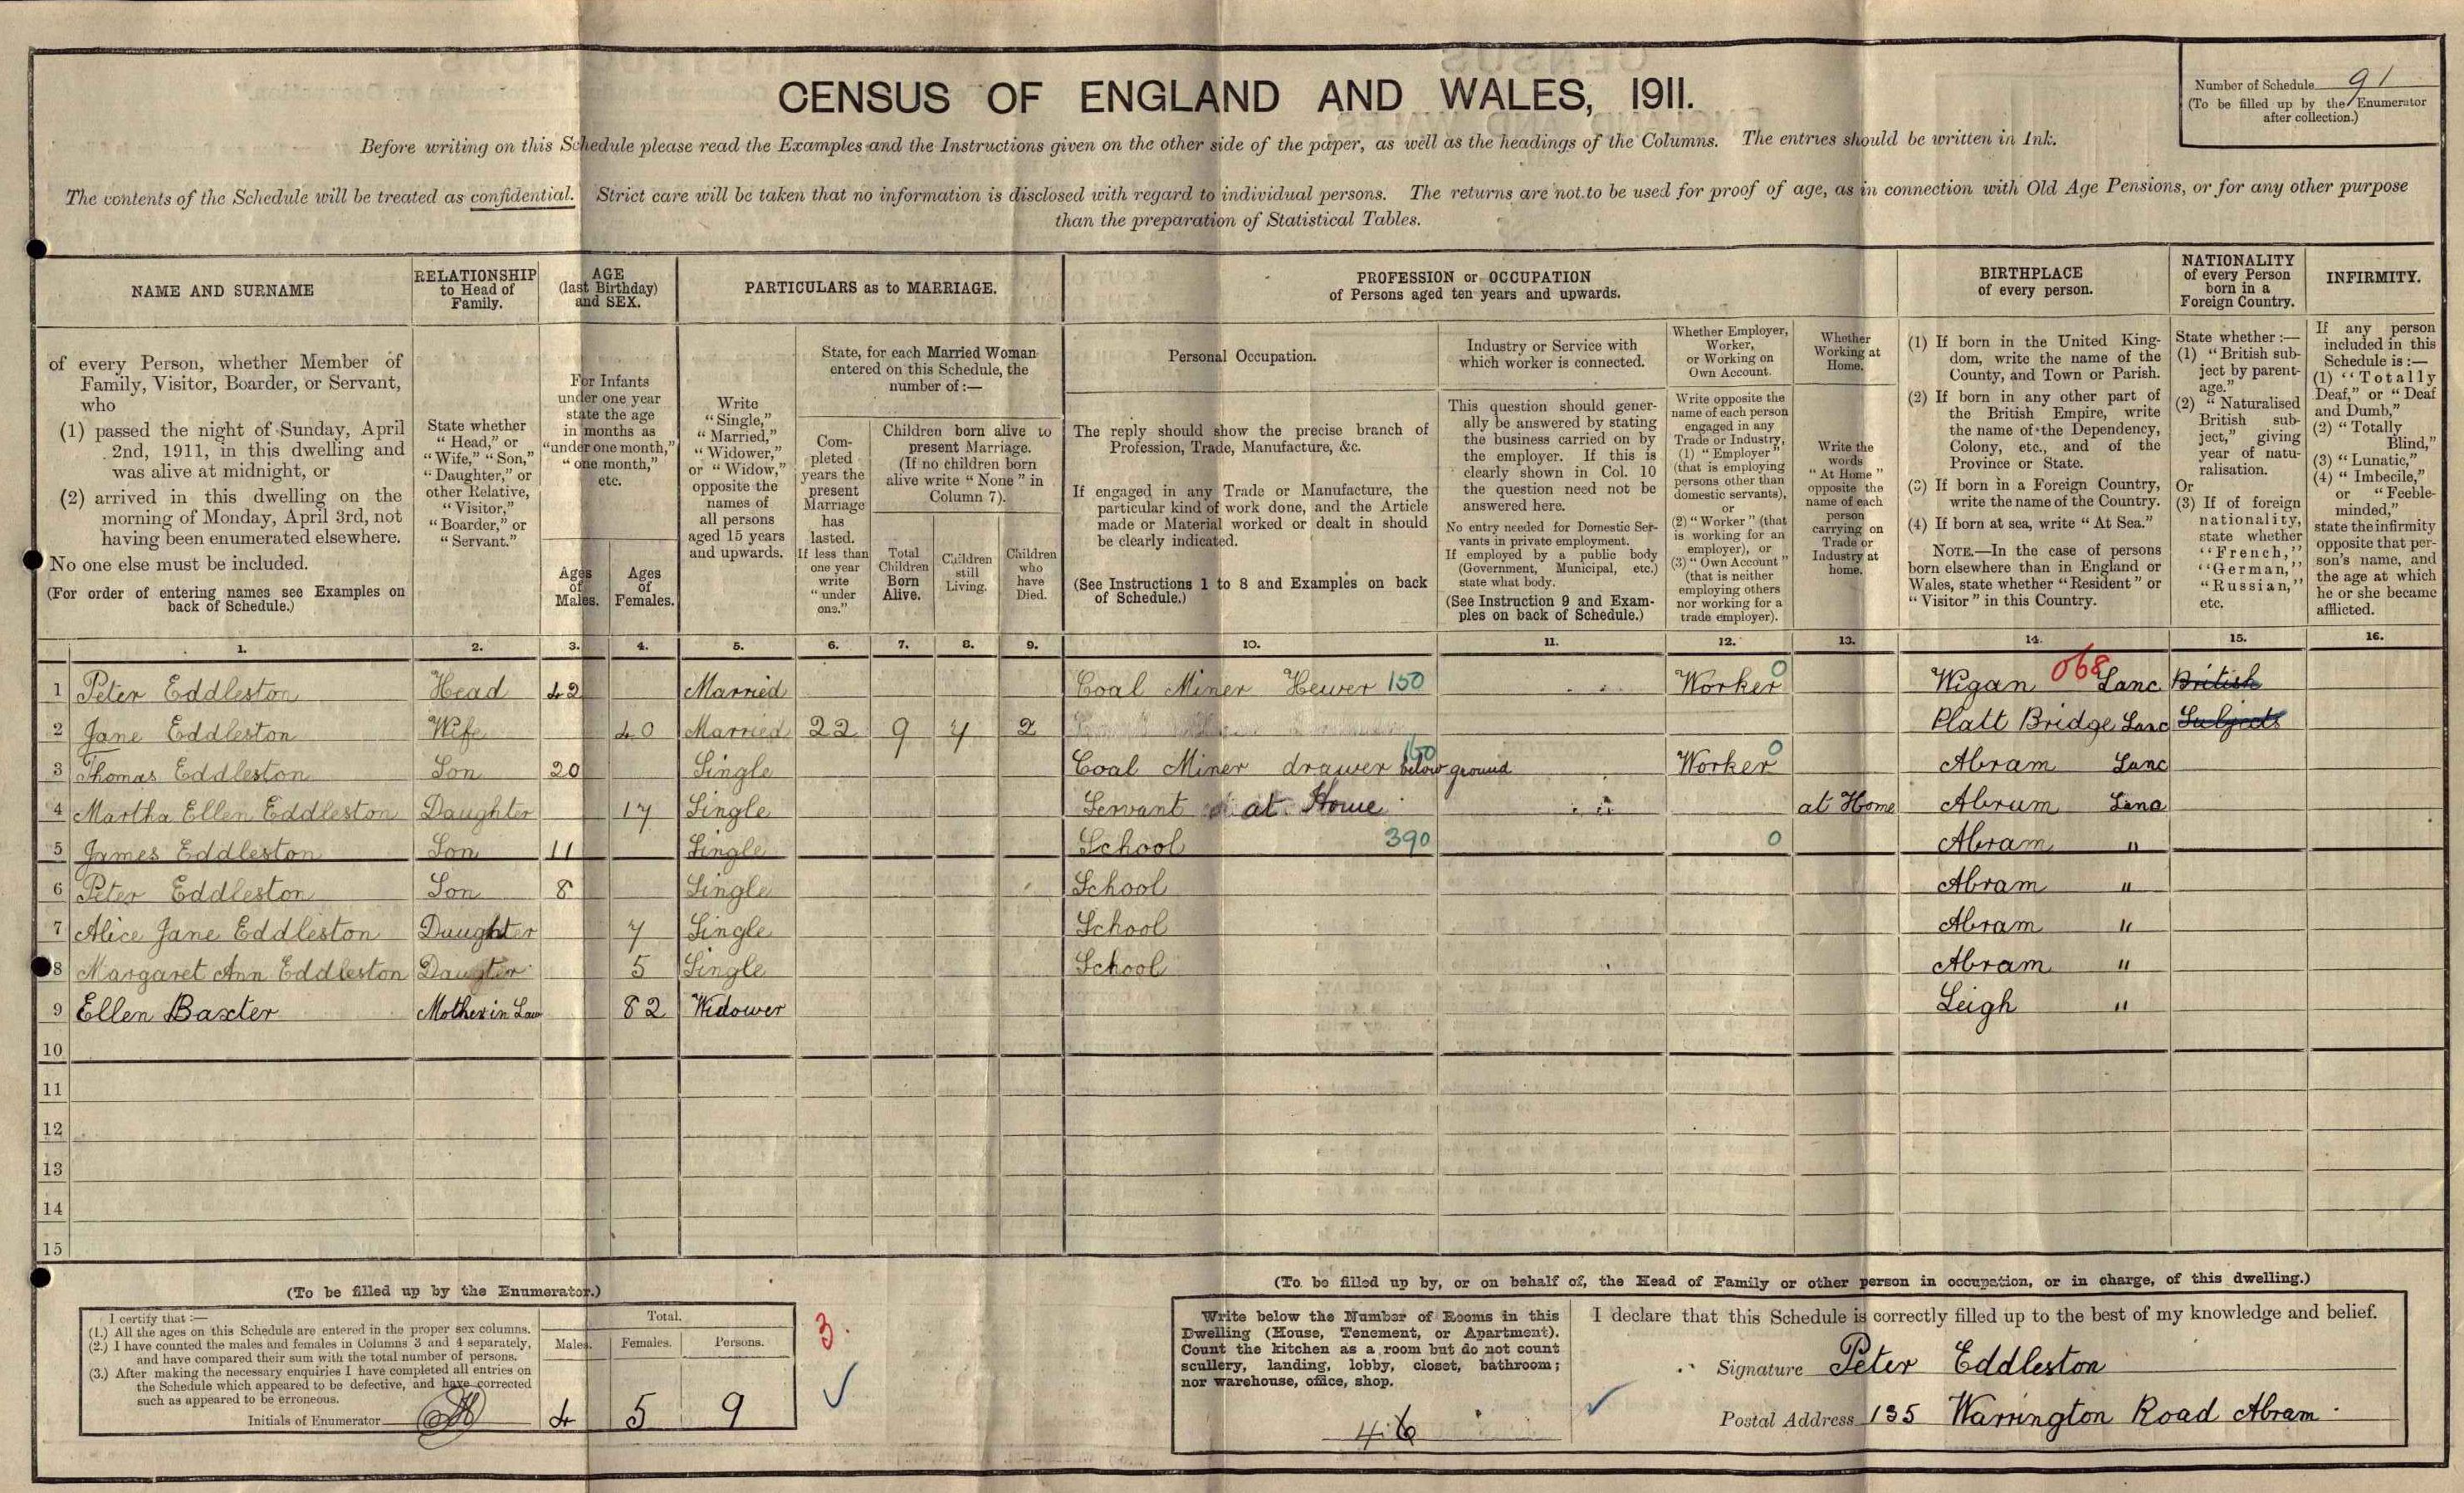 CENSUS OF ENGLAND AND WALES, 1911.
Number of Schedule 91
(To be filled up by the Enumerator
after collection.)
Before writing on this Schedule please read the Examples and the Instructions given on the other side of the paper, as well as the headings of the Columns. The entries should be written in Ink.
The contents of the Schedule will be treated as confidential. Strict care will be taken that no information is disclosed with regard to individual persons. The returns are not to be used for proof of age, as in connection with Old Age Pensions, or for any other purpose
than the preparation of Statistical Tables.
NAME AND SURNAME
of every Person, whether Member of
Family, Visitor, Boarder, or Servant,
who
(1) passed the night of Sunday, April
2nd, 1911, in this dwelling and
was alive at midnight, or
(2) arrived in this dwelling on the
morning of Monday, April 3rd, not
having been enumerated elsewhere.
No one else must be included.
(For order of entering names see Examples on
back of Schedule.)
RELATIONSHIP
to Head of
Family.
State whether
"Head," or
"Wife," "Son,"
"Daughter," or
other Relative,
"Visitor,"
"Boarder," or
"Servant."
AGE
(last Birthday)
and SEX.
For Infants
under one year
state the age
in months as
"under one month,"
"one month,"
etc.
Ages
of
Males.
Ages
of
Females.
PARTICULARS as to MARRIAGE.
Write
"Single,"
"Married,"
"Widower,"
or "Widow,"
opposite the
names of
all persons
aged 15 years
and upwards.
State, for each Married Woman
entered on this Schedule, the
number of :—
Com-
pleted
years the
present
Marriage
has
lasted.
If less than
one year
write
"under
one."
Children born alive to
present Marriage.
(If no children born
alive write "None" in
Column 7).
Total
Children
Born
Alive.
Children
still
Living.
Children
who
have
Died.
PROFESSION or OCCUPATION
of Persons aged ten years and upwards.
Personal Occupation.
The reply should show the precise branch of
Profession, Trade, Manufacture, &c.
If engaged in any Trade or Manufacture, the
particular kind of work done, and the Article
made or Material worked or dealt in should
be clearly indicated.
(See Instructions 1 to 8 and Examples on back
of Schedule.)
Industry or Service with
which worker is connected.
This question should gener-
ally be answered by stating
the business carried on by
the employer. If this is
clearly shown in Col. 10
the question need not be
answered here.
No entry needed for Domestic Ser-
vants in private employment.
If employed by a public body
(Government, Municipal, etc.)
state what body.
(See Instruction 9 and Exam-
ples on back of Schedule.)
Whether Employer,
Worker,
or Working on
Own Account.
Write opposite the
name of each person
engaged in any
Trade or Industry,
(1) "Employer"
(that is employing
persons other than
domestic servants),
or
(2) "Worker" (that
is working for an
employer), or
(3) "Own Account"
(that is neither
employing others
nor working for a
trade employer).
Whether
Working at
Home.
Write the
words
"At Home"
opposite the
name of each
person
carrying on
Trade or
Industry at
home.
BIRTHPLACE
of every person.
(1) If born in the United King-
dom, write the name of the
County, and Town or Parish.
(2) If born in any other part of
the British Empire, write
the name of the Dependency,
Colony, etc., and of the
Province or State.
(3) If born in a Foreign Country,
write the name of the Country.
(4) If born at sea, write "At Sea."
NOTE.—In the case of persons
born elsewhere than in England or
Wales, state whether "Resident" or
"Visitor" in this Country.
NATIONALITY
of every Person
born in a
Foreign Country.
State whether :—
(1) "British sub-
ject by parent-
age."
(2) "Naturalised
British sub-
ject," giving
year of natu-
ralisation.
Or
(3) If of foreign
nationality,
state whether
"French,"
"German,"
"Russian,"
etc.
INFIRMITY.
If any person
included in this
Schedule is :—
(1) "Totally
Deaf," or "Deaf
and Dumb,"
(2) "Totally
Blind,"
(3) "Lunatic,"
(4) "Imbecile,"
or "Feeble-
minded,"
state the infirmity
opposite that per-
son's name, and
the age at which
he or she became
afflicted.
1. 2. 3. 4. 5. 6. 7. 8. 9. 10. 11. 12. 13. 14. 15. 16.
1 Peter Eddleston Head 42 Married Coal Miner Hewer 150 Worker 0 Wigan 068 Lanc British
2 Jane Eddleston Wife 40 Married 22 9 7 2 Platt Bridge Lanc Subjects
3 Thomas Eddleston Son 20 Single Coal Miner drawer below ground 150 Worker 0 Abram Lanc
4 Martha Ellen Eddleston Daughter 17 Single Servant at Home at Home Abram Lanc
5 James Eddleston Son 11 Single School 390 0 Abram "
6 Peter Eddleston Son 8 Single School Abram "
7 Alice Jane Eddleston Daughter 7 Single School Abram "
8 Margaret Ann Eddleston Daugter 5 Single School Abram "
9 Ellen Baxter Mother in Law 82 Widower Leigh "
10
11
12
13
14
15
(To be filled up by the Enumerator.)
I certify that :—
(1.) All the ages on this Schedule are entered in the proper sex columns.
(2.) I have counted the males and females in Columns 3 and 4 separately,
and have compared their sum with the total number of persons.
(3.) After making the necessary enquiries I have completed all entries on
the Schedule which appeared to be defective, and have corrected
such as appeared to be erroneous.
Initials of Enumerator
Total.
Males. Females. Persons.
4 5 9
3.
(To be filled up by, or on behalf of, the Head of Family or other person in occupation, or in charge, of this dwelling.)
Write below the Number of Rooms in this
Dwelling (House, Tenement, or Apartment).
Count the kitchen as a room but do not count
scullery, landing, lobby, closet, bathroom;
nor warehouse, office, shop.
4
I declare that this Schedule is correctly filled up to the best of my knowledge and belief.
Signature Peter Eddleston
Postal Address 135 Warrington Road Abram.